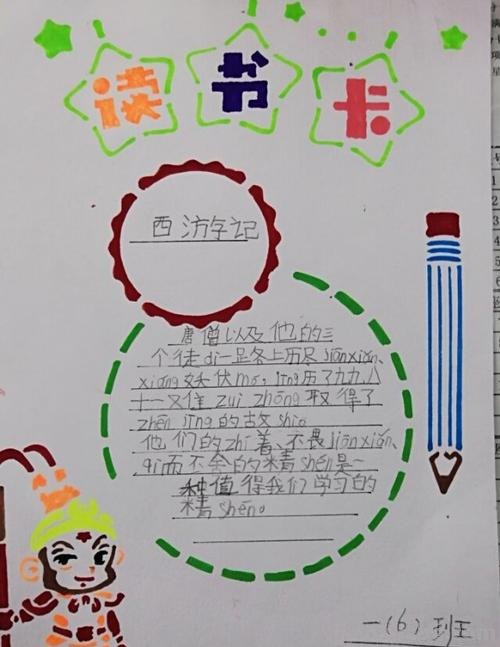 读书卡
西游字记
唐僧以及他的三
个徒di一足各上历尽jiānxiǎn、
xiáng妖伏mó,jīng历了九九八
十一又佳zuì zhōng取得了
zhēn jīng的古文shi。
他们的zhí着、不畏jiānxiǎn、
qì而不舍的精shén是一
种值得我们学习的
精shén。
一(6)班王